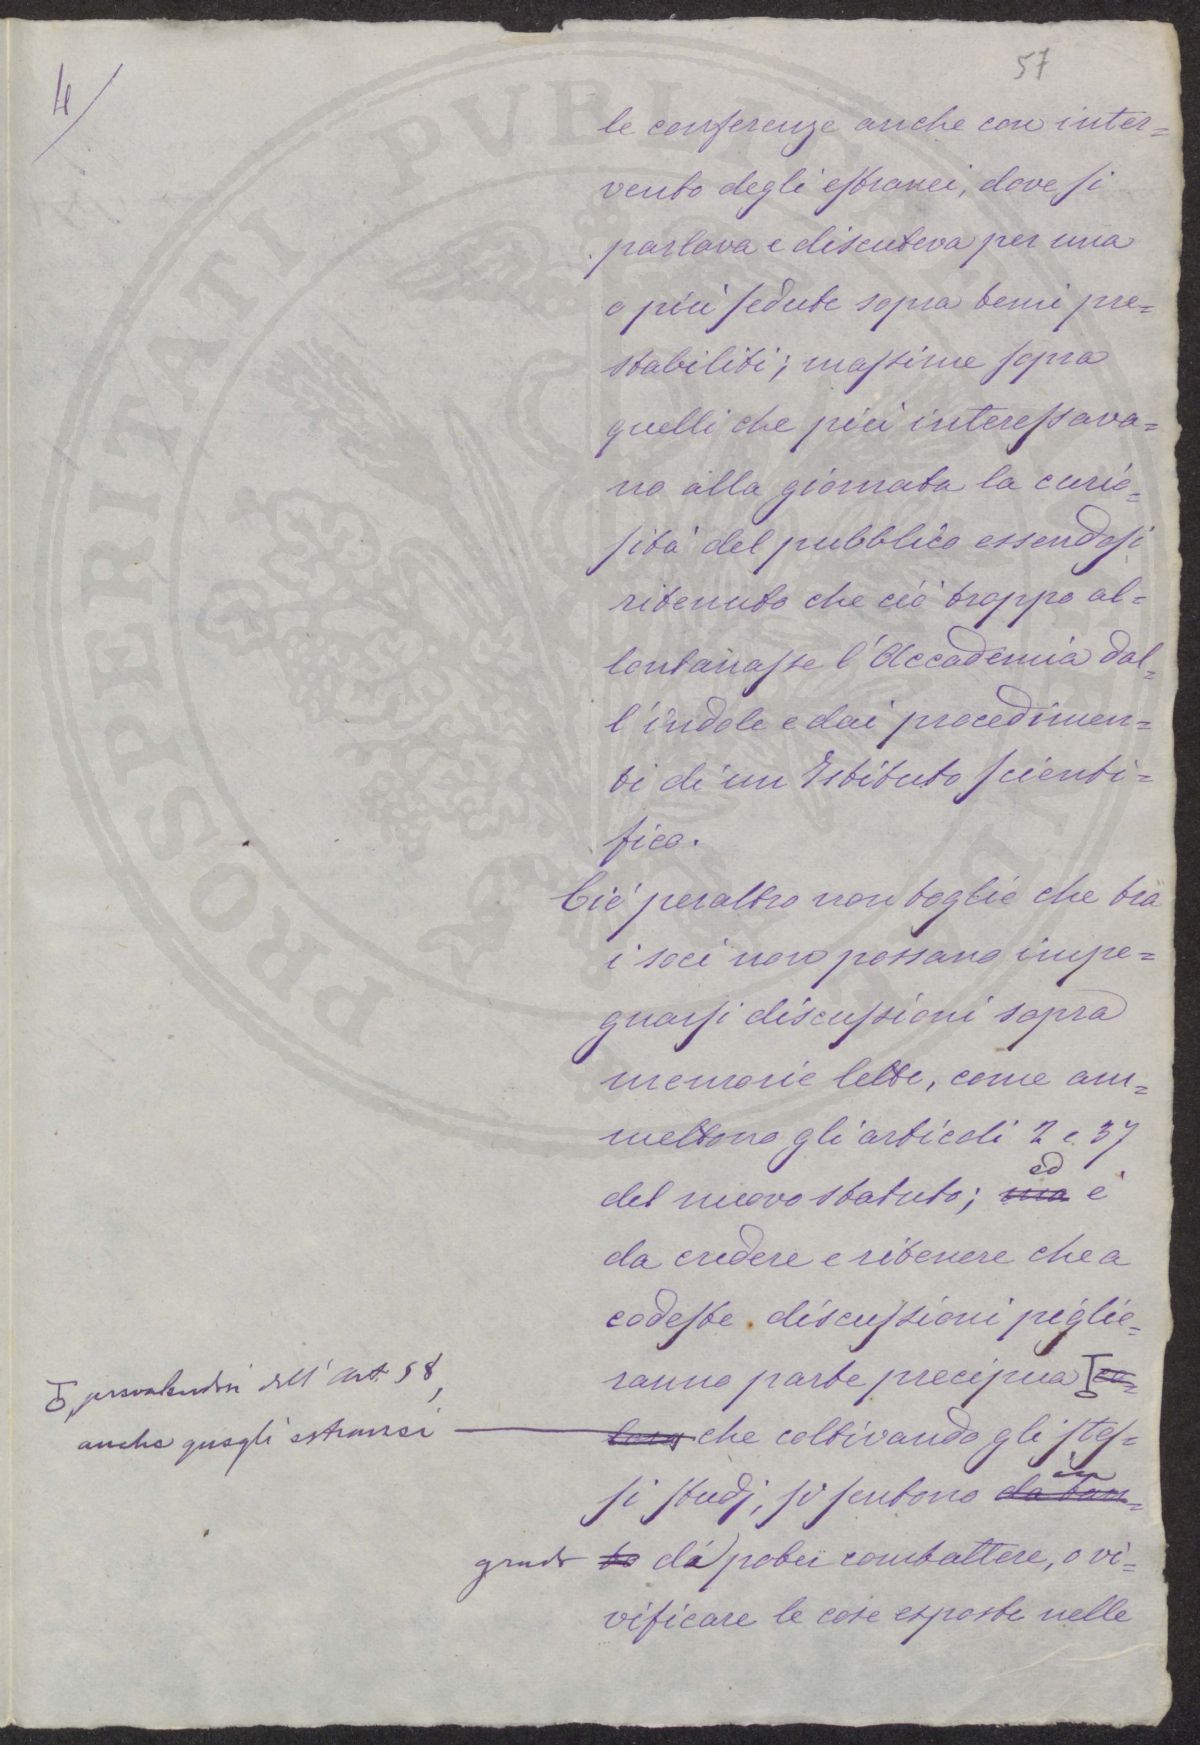 57
4/
le conferenze anche con inter=
vento degli estranei, dove si
parlava e discuteva per una
o più sedute sopra temi pre=
stabiliti; massime sopra
quelli che più interessava=
no alla giornata la curio=
sità del pubblico essendosi
ritenuto che ciò troppo al=
lontanasse l'Accademia dal=
l'indole e dai procedimen=
ti di un Istituto scienti=
fico.
Ciò peraltro non toglie che tra
i soci non possano impe=
gnarsi discussioni sopra
memorie lette, come am=
mettono gli articoli 2 e 37
ed
del nuovo statuto; ma è
da credere e ritenere che a
codeste discussioni piglie=
ranno parte precipua co=
prevalendosi dell'art. 58,
anche quegli estranei
loro che coltivando gli stes=
si studj, si sentono da tan=
in
grado to di poter combattere, o vi=
vificare le cose esposte nelle
PROSPERITATI PVBLICAE